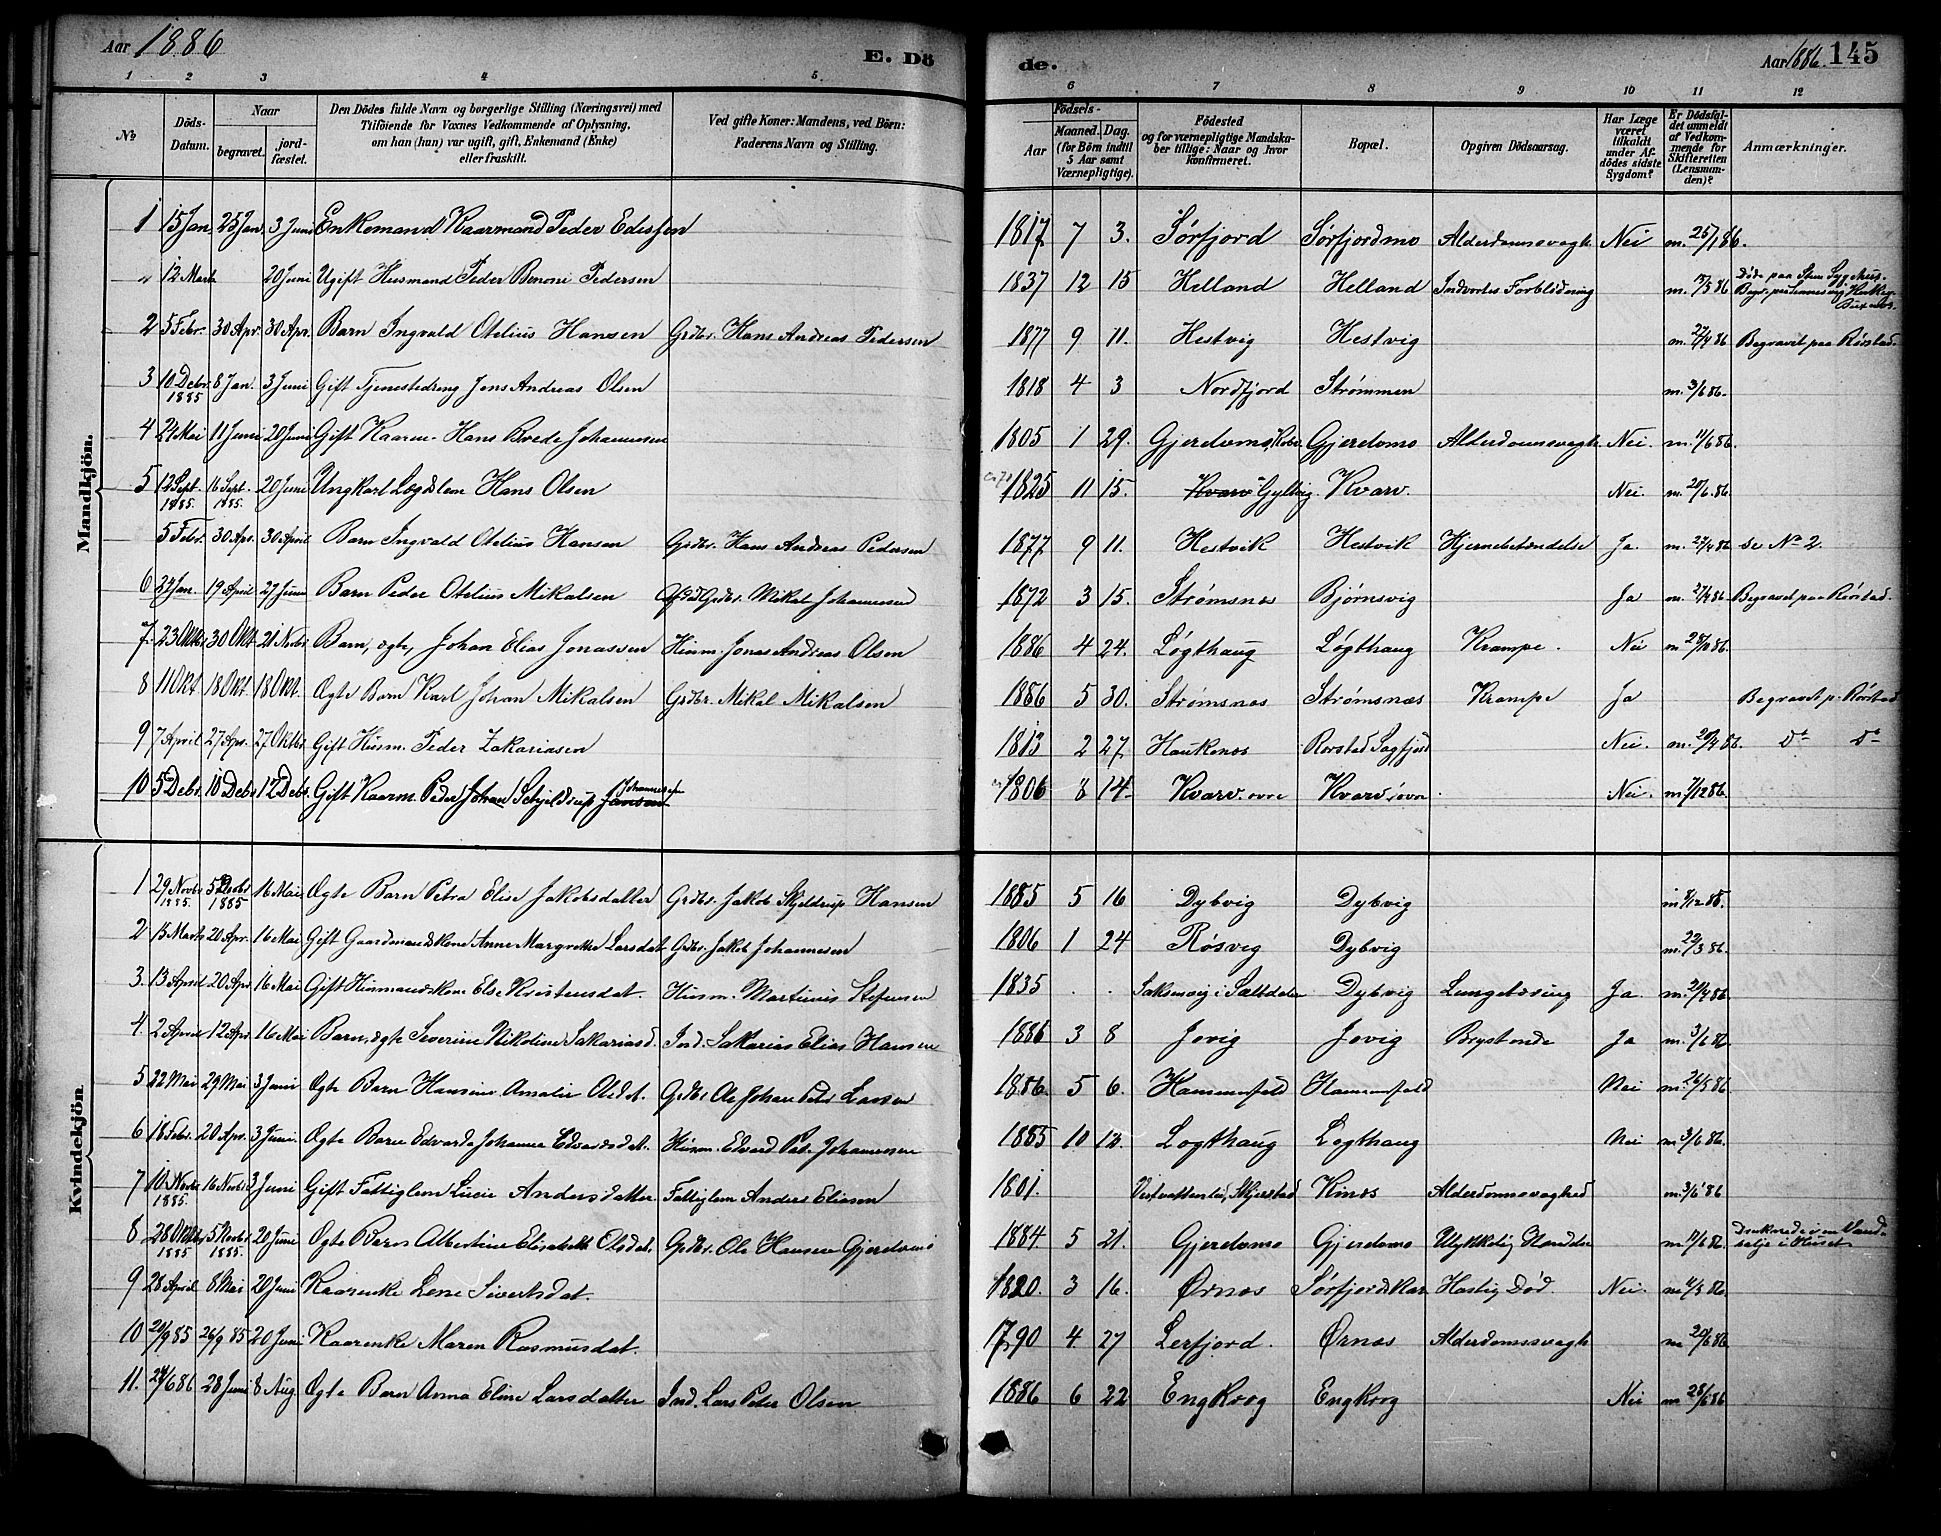 Aar 1886
E. Dö
de.
Aar 1886. 145
1 2 3 4 5. 6 7 8 9 10 11 12
№ Döds-Datum. Naar begravet. jord-fæstet. Den Dödes fulde Navn og borgerlige Stilling (Næringsvei) med Tilföiende for Voxnes Vedkommende af Oplysning, om han (hun) var ugift, gift, Enkemand (Enke) eller fraskilt. Ved gifte Koner: Mandens, ved Börn: Faderens Navn og Stilling. Födsels- Aar Maaned. Dag. (for Börn indtil 5 Aar samt Værnepligtige). Födested og for værnepligtige Mandskaber tillige: Naar og hvor konfirmeret. Bopæl. Opgiven Dödsaarsag. Har Læge været tilkaldt under Afdödes sidste Sygdom? Er Dödsfaldet anmeldt af Vedkommende for Skifteretten (Lensmanden)? Anmærkninger.
Mandkjön.
1 15 Jan. 25 Jan. 3 Juni Enkemand Kaarmand Peder Edissen 1817 7 3. Sørfjord Sørfjordmo Alderdomssvagh. Nei m. 25/1 86.
" 12 Marts 20 Juni Ugift Husmand Peder Benoni Pedersen 1837 12 15 Helland Helland Indvortes Forblødning Døde paa Sygehus.
2 5 Febr. 30 Apr. 30 Apr. Barn Ingvald Otelius Hansen Grdbr. Hans Andreas Pedersen 1877 9 11. Hestvig Hestvig m. 27/4 86 Begravet paa Rørstad.
3 10 Debr. 1885 8 Jan. 3 Juni Gift Tjenestedreng Jens Andreas Olsen 1818 4 3 Nordfjord Strømmen m. 3/6 86.
4 24 Mai 11 Juni 20 Juni Gift Kaarm. Hans Brede Johannesen 1805 1 29. Gjerdomo, Gjerdomo Alderdomssvagh. Nei. m. 11/6 86.
5 12 Sept. 1885. 16 Sept. 1885. 20 Juni Ungkarl Lægdslem Hans Olsen 1825 11 15. Kvarv Gyltvig Kvarv. Nei. m. 20/6. 86.
5 Febr. 30 Apr. 30 April Barn Ingvald Otelius Hansen Grdbr. Hans Andreas Pedersen 1877 9 11. Hestvik Hestvik Hjernebetændelse Ja. m. 27/4 86 se No 2.
6 24 Jan. 19 April 27 Juni Barn Peder Otelius Mikalsen Grdbr. Mikal Johannesen 1872 3 15. Strømsnes Bjørnsvig Ja m. 27/4 86 Begravet paa Rørstad.
7. 23 Oktbr 30 Okt. 21 Novbr Barn, ægte, Johan Elias Jonassen Husm. Jonas Andreas Olsen 1886 4 24. Løgthaug Løgthaug Krampe. Nei m 28/10 86.
8 11 Okt 18 Okt. 18 Okt. Ægte Barn Karl Johan Mikalsen Grdbr. Mikal Mikalsen 1886 5 30. Strømsnæs Strømsnæs Krampe Ja Begravet p. Rørstad
9 7 April 27 Apr. 27 Oktbr. Gift Husm. Peder Zakariasen 1813 2 27. Haukenes Rørstad Sagfjord Nei. m. 20/4 86. Do Do
10 5 Debr. 10 Debr 12 Debr. Gift Kaarm. Peder Johan Schjeldrup Jansen Johannesen 1806 8 14. Kvarv. øvre Kvarv, øvre Nei. m. 7/12 86.
Kvindekjön.
1 29 Novbr 1885. 5 Decbr 1885 16 Mai Ægte Barn Petra Elise Jakobsdatter Grdbr. Jakob Skjeldrup Hansen 1885 5 16 Dybvig Dybvig m 8/12 85.
2 15 Marts 20 Apr. 16 Mai Gift Gaardmandskone Anne Margrethe Larsdat. Grdbr. Jakob Johannesen 1806 1 24 Røsvig Dybvig m. 22/3 86.
3. 13 April 20 Apr 16 Mai Gift Husmandskone Else Kristensdat. Husm. Martinus Stefensen 1835 . . Saksenvig i Saltdalen Dybvig Lungetæring Ja. m. 20/4 86
4. 2 April 12 Apr 16 Mai Barn, ægte Severine Nikoline Sakariasd. Ind. Sakarias Elias Hansen 1886 3 8 Jovig Jovig Brystonde Ja m. 3/6 86
5 22 Mai 29 Mai 3 Juni Ægte Barn Hansine Amalie Olsdt. Grdbr Ole Johan Peder Larsen 1886. 5 6. Hammerfald Hammerfald Nei m. 26/5 86.
6 18 Febr. 20 Apr. 3 Juni. Ægte Barn Edvarda Johanna Edvardsdat. Husm. Edvard Pet. Johannesen 1885 10 12. Løgthaug Løgthaug Nei m 3/6 86.
7 10 Novbr 1885. 16 Novbr 3 Juni Gift Fattiglem Lucie Andersdatter Fattiglem Anders Eliasen 1801. Skjerstad Kines Alderdomssvaghed m. 3/6 86
8 28 Oktbr 1885 5 Novbr 1885. 20 Juni Ægte Barn Albertine Elisabeth Olsdat. Grdbr. Ole Hansen Gjerdomo 1884. 5 21. Gjerdomo Gjerdomo Ulykkelig Hændelse m. 11/6 86. Druknede i en Vandbalje i Huset
9 28 April 8 Mai 20 Juni Kaarenke Lene Sivertsdat. 1820. 3 16. Ørnes Sørfjordskar Hastig Død. Nei. m 11/5 86.
10 20/9 85 26/9 85 20 Juni Kaarenke Maren Rasmusdat. 1790 4. 27 Lerfjord. Ørnes Alderdomssvagh m 20/6 86.
11. 24/6 86 28 Juni 8 Aug Ægte Barn Anna Eline Larsdatter Ind. Lars Peter Olsen 1886 6 22 Engkrog Engkrog Nei m. 28/6 86